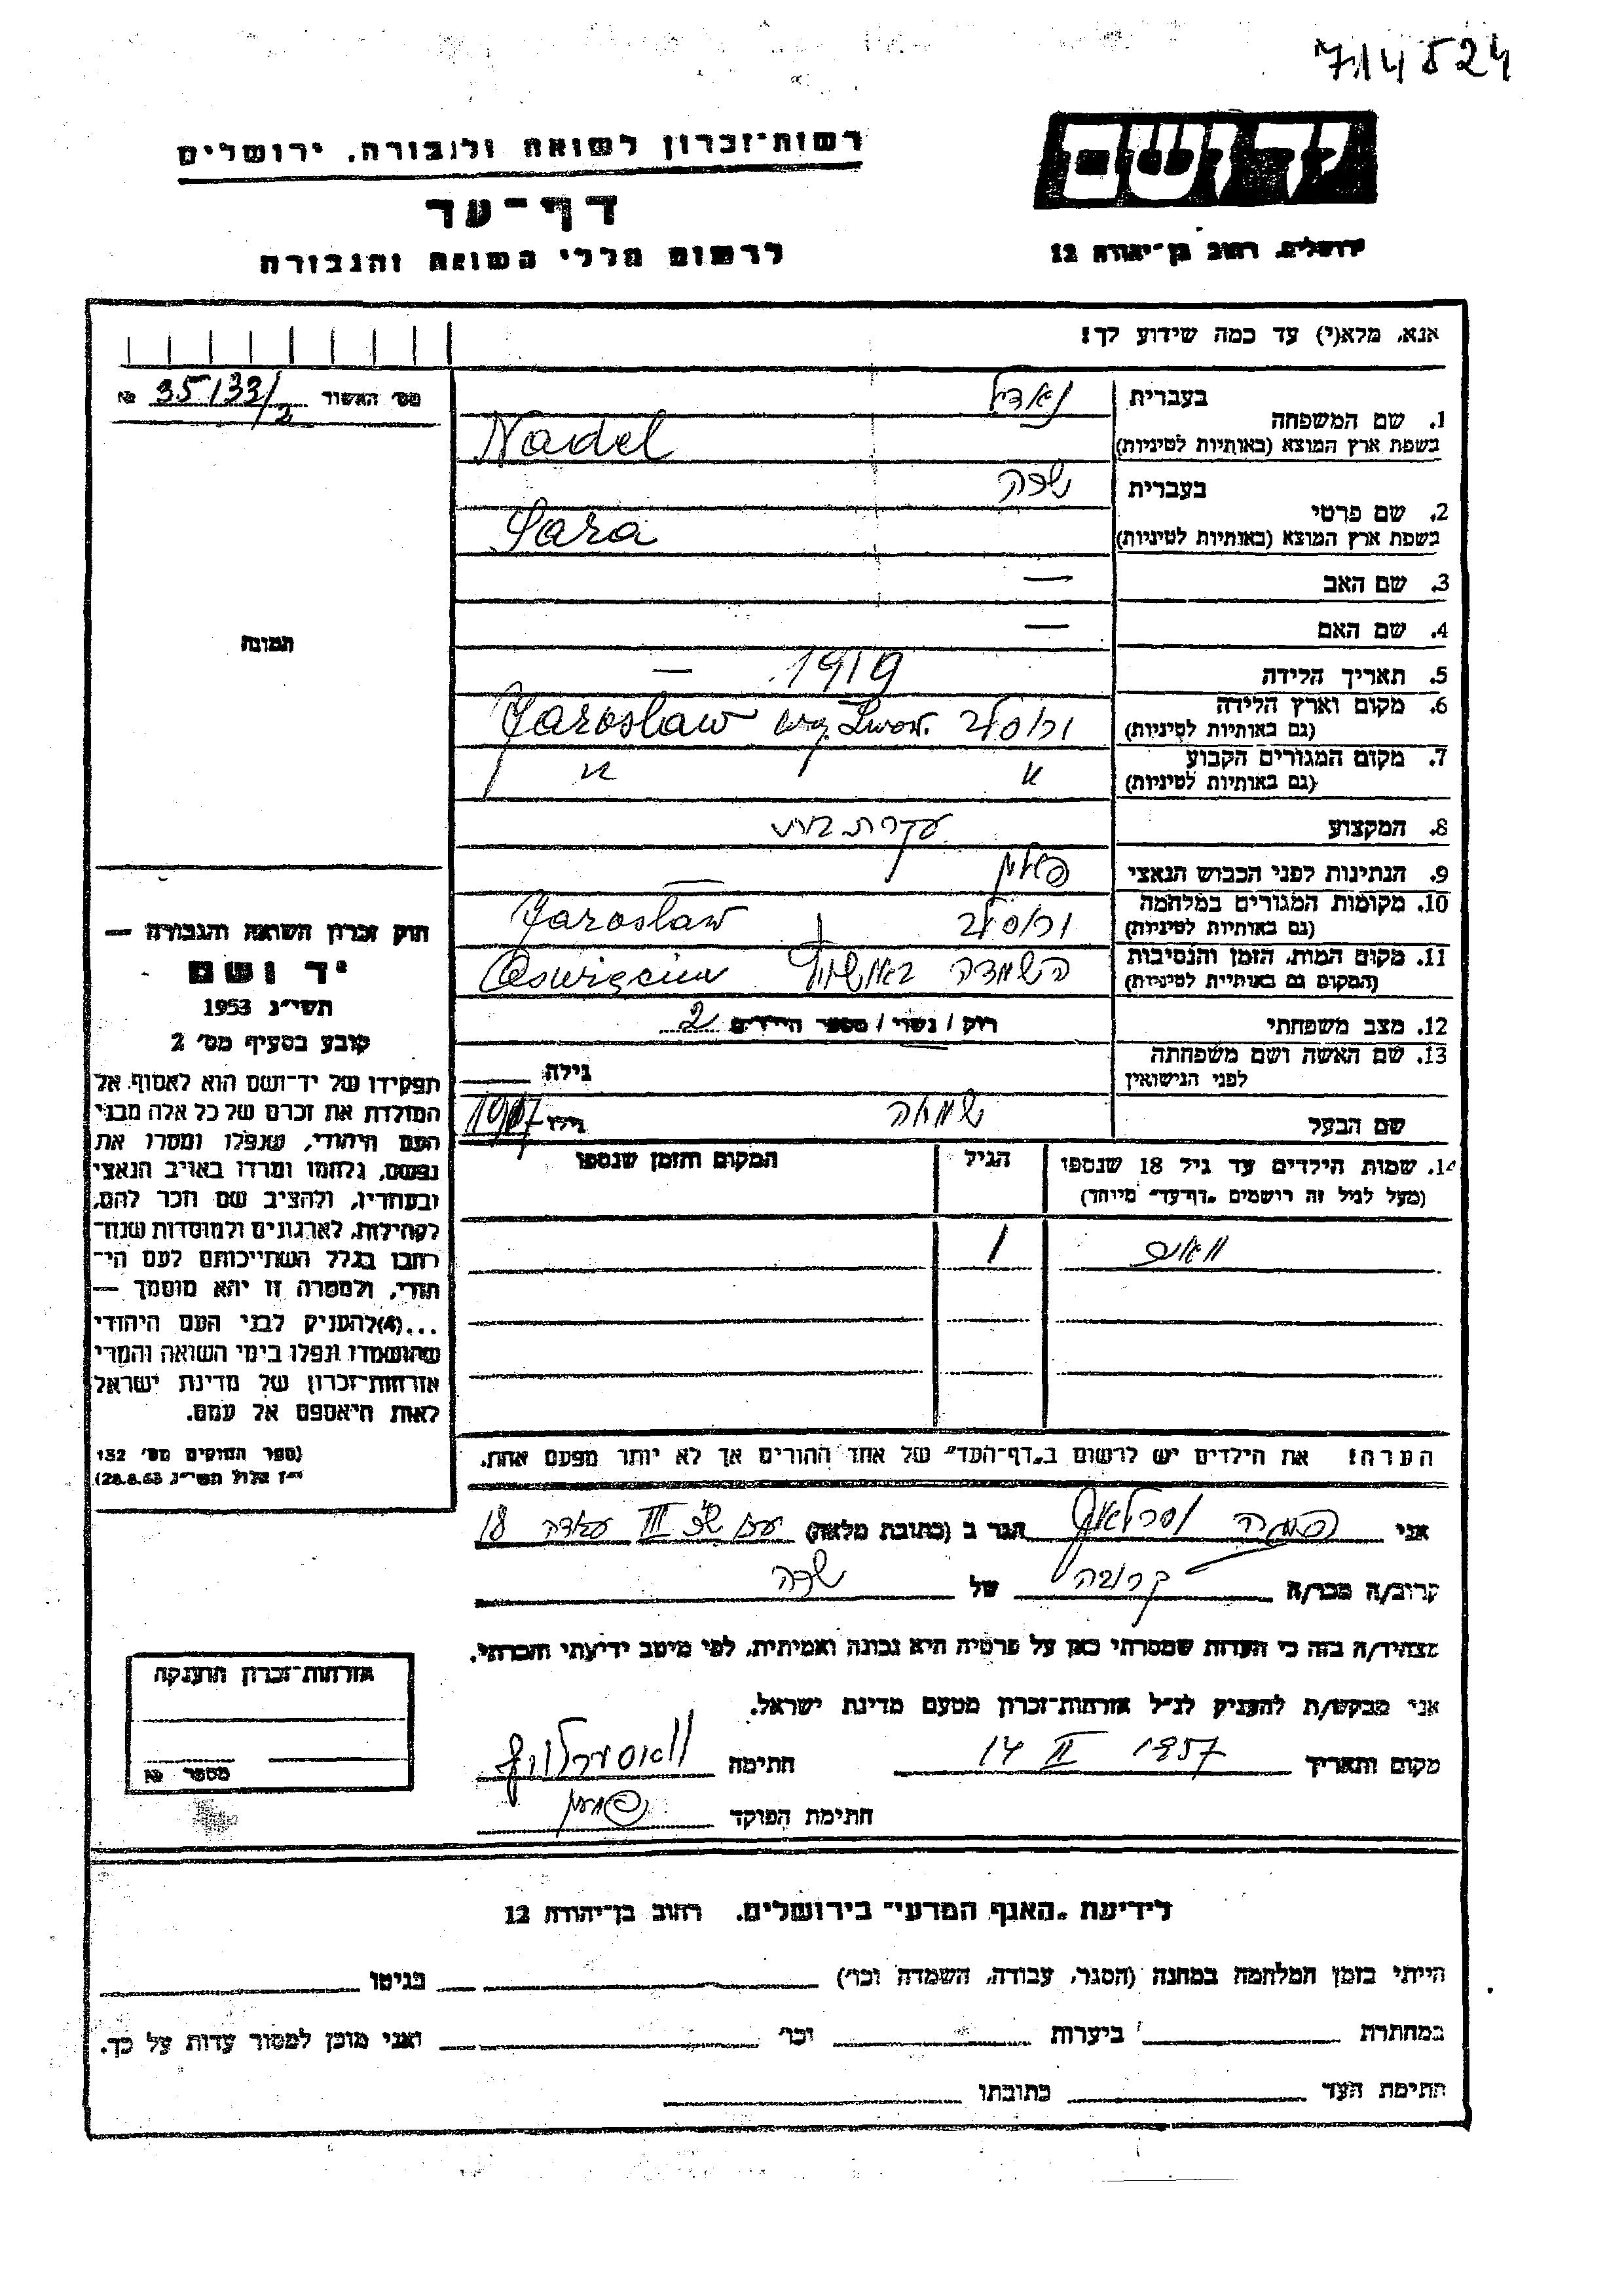 714524
יד ושם
רשות-זכרון לשואה ולגבורה, ירושלים
ירושלים, רחוב בן-יהודה 12
דף-עד
לרשום חללי השואה והגבורה
אנא, מלא(י) עד כמה שידוע לך!
מס׳ האשור 35133/2 №
תמונה
בעברית נאדל
1. שם המשפחה
בשפת ארץ המוצא (באותיות לטיניות) Nadel
בעברית שרה
2. שם פרטי
בשפת ארץ המוצא (באותיות לטיניות) Sara
3. שם האב —
4. שם האם —
5. תאריך הלידה 1919 —
6. מקום וארץ הלידה
(גם באותיות לטיניות) Jarosław woj. Lwow.
7. מקום המגורים הקבוע
(גם באותיות לטיניות) " "
8. המקצוע עקרת בית
9. הנתינות לפני הכבוש הנאצי פולין —
10. מקומות המגורים במלחמה
(גם באותיות לטיניות) Jarosław
11. מקום המות, הזמן והנסיבות
(המקום גם באותיות לטיניות) השמדה Oswięcim
12. מצב משפחתי רוק / נשוי / מספר הילדים 2
13. שם האשה ושם משפחתה
לפני הנישואין גילה
שם הבעל שמחה גילו
14. שמות הילדים עד גיל 18 שנספו הגיל המקום והזמן שנספו
(מעל לגיל זה רושמים „דף-עד״ מיוחד)
1
חוק זכרון השואה והגבורה —
יד ושם
תשי״ג 1953
קובע בסעיף מס׳ 2
תפקידו של יד-ושם הוא לאסוף אל
המולדת את זכרם של כל אלה מבני
העם היהודי, שנפלו ומסרו את
נפשם, נלחמו ומרדו באויב הנאצי
ובעוזריו, ולהציב שם וזכר להם,
לקהילות, לארגונים ולמוסדות שנח־
רבו בגלל השתייכותם לעם הי־
הודי, ולמטרה זו יהא מוסמך —
...(4) להעניק לבני העם היהודי
שהושמדו ונפלו בימי השואה והמרי
אזרחות-זכרון של מדינת ישראל
לאות היאספם אל עמם.
(ספר החוקים מס׳ 132
י״ז אלול תשי״ג 28.8.53)
הערה! את הילדים יש לרשום ב„דף-העד״ של אחד ההורים אך לא יותר מפעם אחת.
אני הגר ב (כתובת מלאה) III 18
קרוב/ה מכר/ה קרובה של שרה
מצהיר/ה בזה כי העדות שמסרתי כאן על פרטיה היא נכונה ואמיתית, לפי מיטב ידיעתי והכרתי.
אני מבקש/ת להעניק לנ״ל אזרחות-זכרון מטעם מדינת ישראל.
מקום ותאריך 14 II 1957 חתימה
חתימת הפוקד
אזרחות-זכרון הוענקה
מספר №
לידיעת „האגף המדעי״ בירושלים, רחוב בן-יהודה 12
הייתי בזמן המלחמה במחנה (הסגר, עבודה, השמדה וכו׳) בגיטו
במחתרת ביערות וכו׳ ואני מוכן למסור עדות על כך.
חתימת העד כתובתו